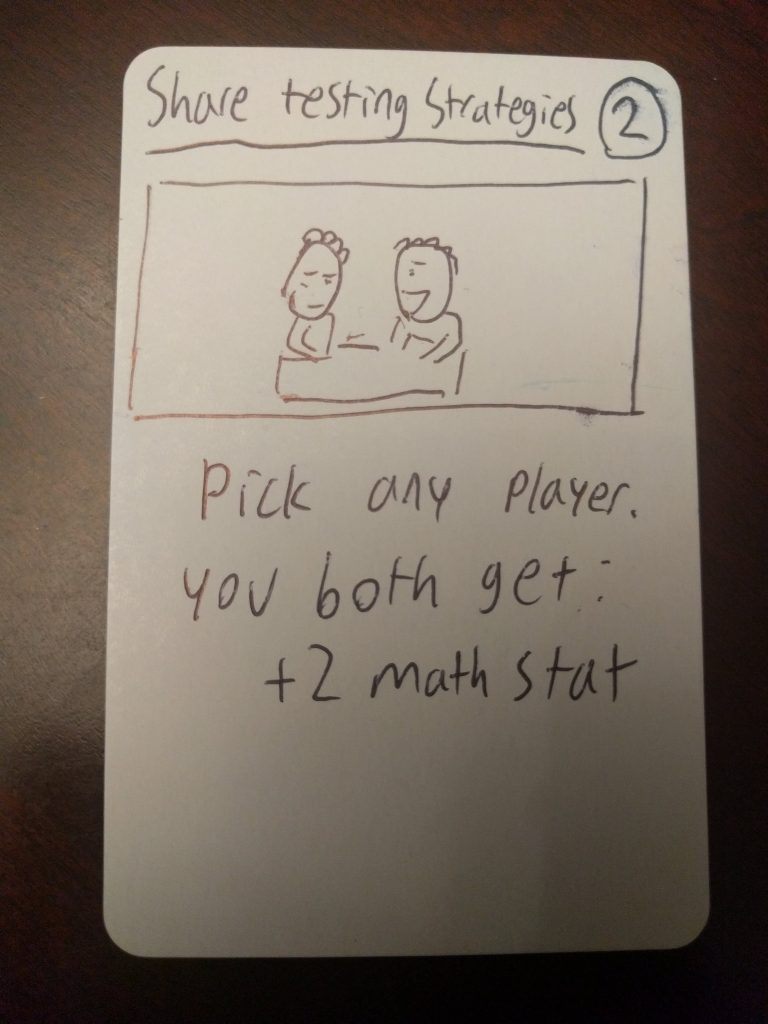 Share testing Strategies 2
Pick any player.
you both get:
+2 math stat